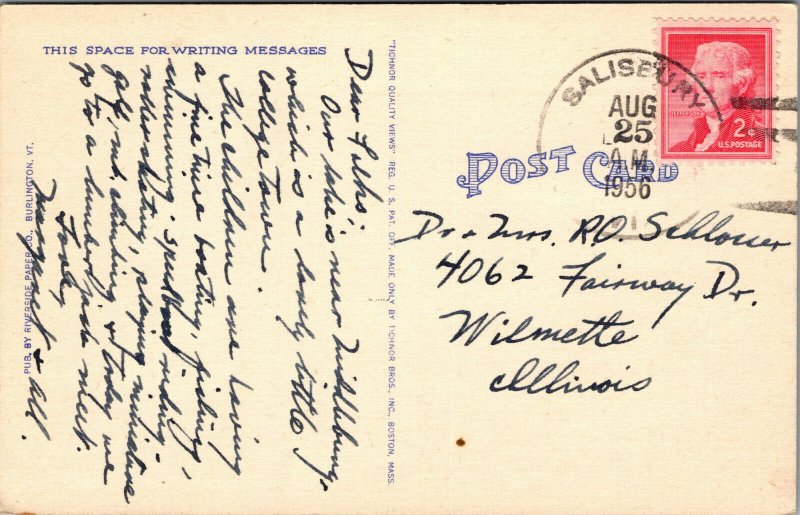 THIS SPACE FOR WRITING MESSAGES
Dear Folks:
Our lake is near Middlebury,
which is a lovely little
college town.
The children are having
a fine time boating, fishing,
swimming, speedboat riding,
roller skating, playing miniature
golf, mt. climbing & today we
go to a lumberjack meet.
Love,
Marge & all.
PUB. BY RIVERSIDE PAPER CO., BURLINGTON, VT.
"TICHNOR QUALITY VIEWS" REG. U. S. PAT. OFF. MADE ONLY BY TICHNOR BROS., INC., BOSTON, MASS.
POST CARD
SALISBURY
AUG
25
A.M.
1956
JEFFERSON
2¢
U.S. POSTAGE
Dr. & Mrs. RO Schlosser
4062 Fairway Dr.
Wilmette
Illinois